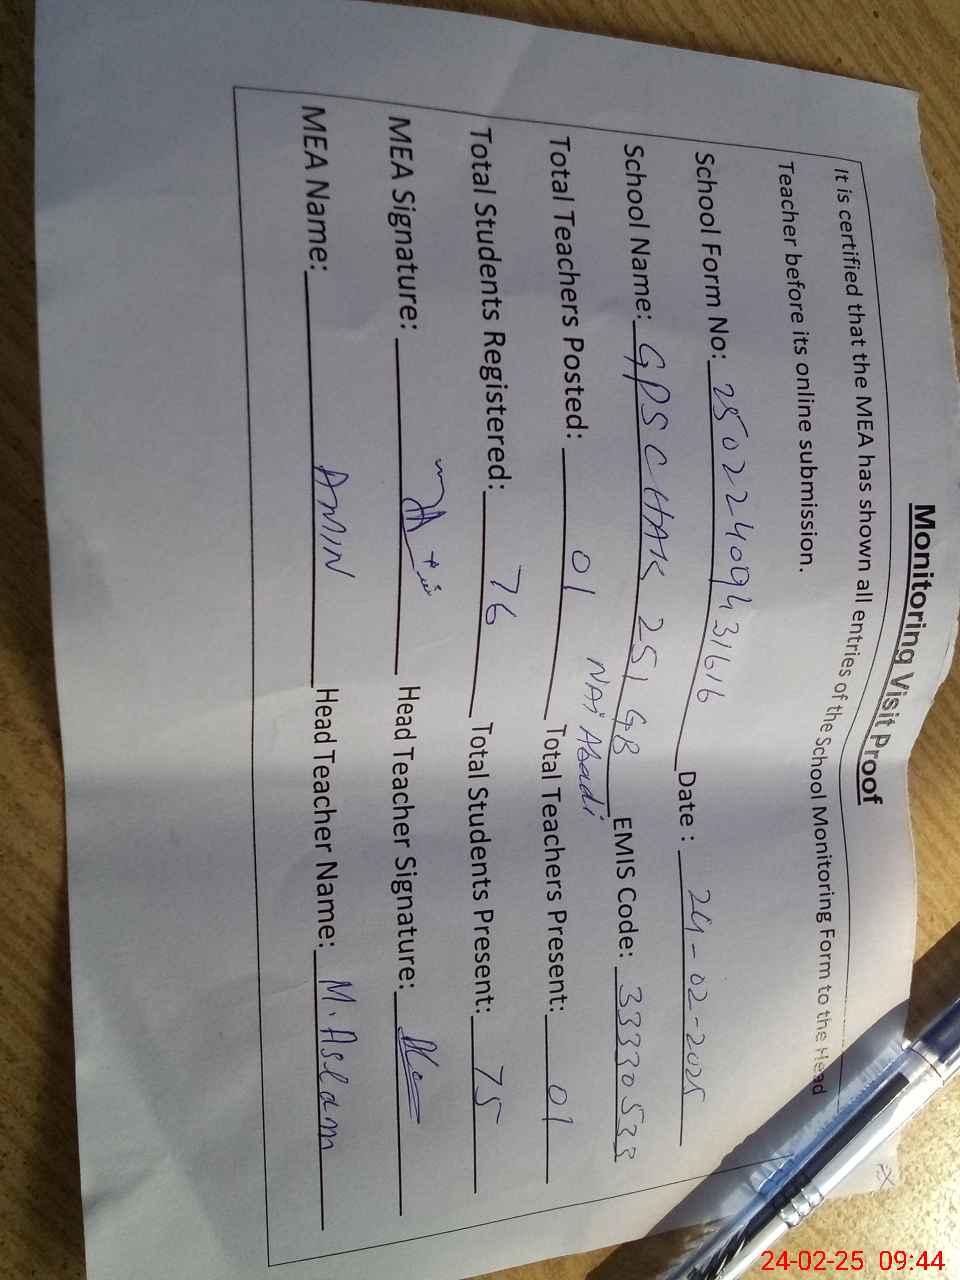 Monitoring Visit Proof
It is certified that the MEA has shown all entries of the School Monitoring Form to the Head
Teacher before its online submission.
School Form No: 25022409431616 Date : 24-02-2025
School Name: GPS CHAK 251 GB EMIS Code: 33330533
NAi Abadi
Total Teachers Posted: 01 Total Teachers Present: 01
Total Students Registered: 76 Total Students Present: 75
MEA Signature: Head Teacher Signature:
MEA Name: AMIN Head Teacher Name: M. Aslam
24-02-25 09:44